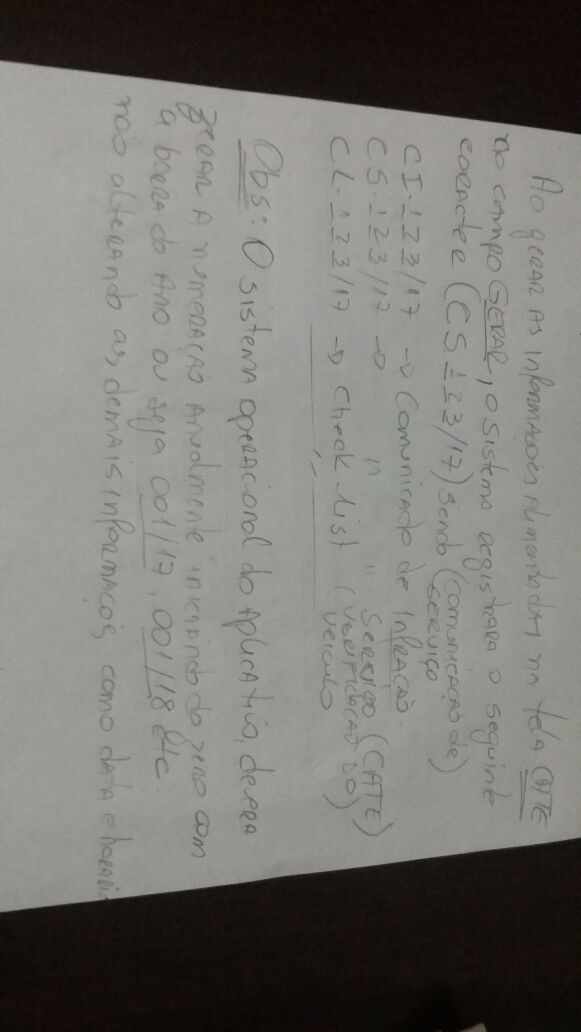 Ao gerar as informações alimentadas na tela CATE
no campo GERAR, o sistema registrara o seguinte
coracter (CS.123/17) sendo (comunicação de
serviço)
CI.123/17 → Comunicado de Infração
CS.123/17 → " " Serviço (CATE)
CL.123/17 → Check-list (verificação do
veiculo)
Obs: O sistema operacional do aplicativo, devera
zerar a numeração anualmente iniciando do zero com
a barra do ano ou seja 001/17, 001/18 etc.
não alterando as, demais informaçoẽs como data e horario